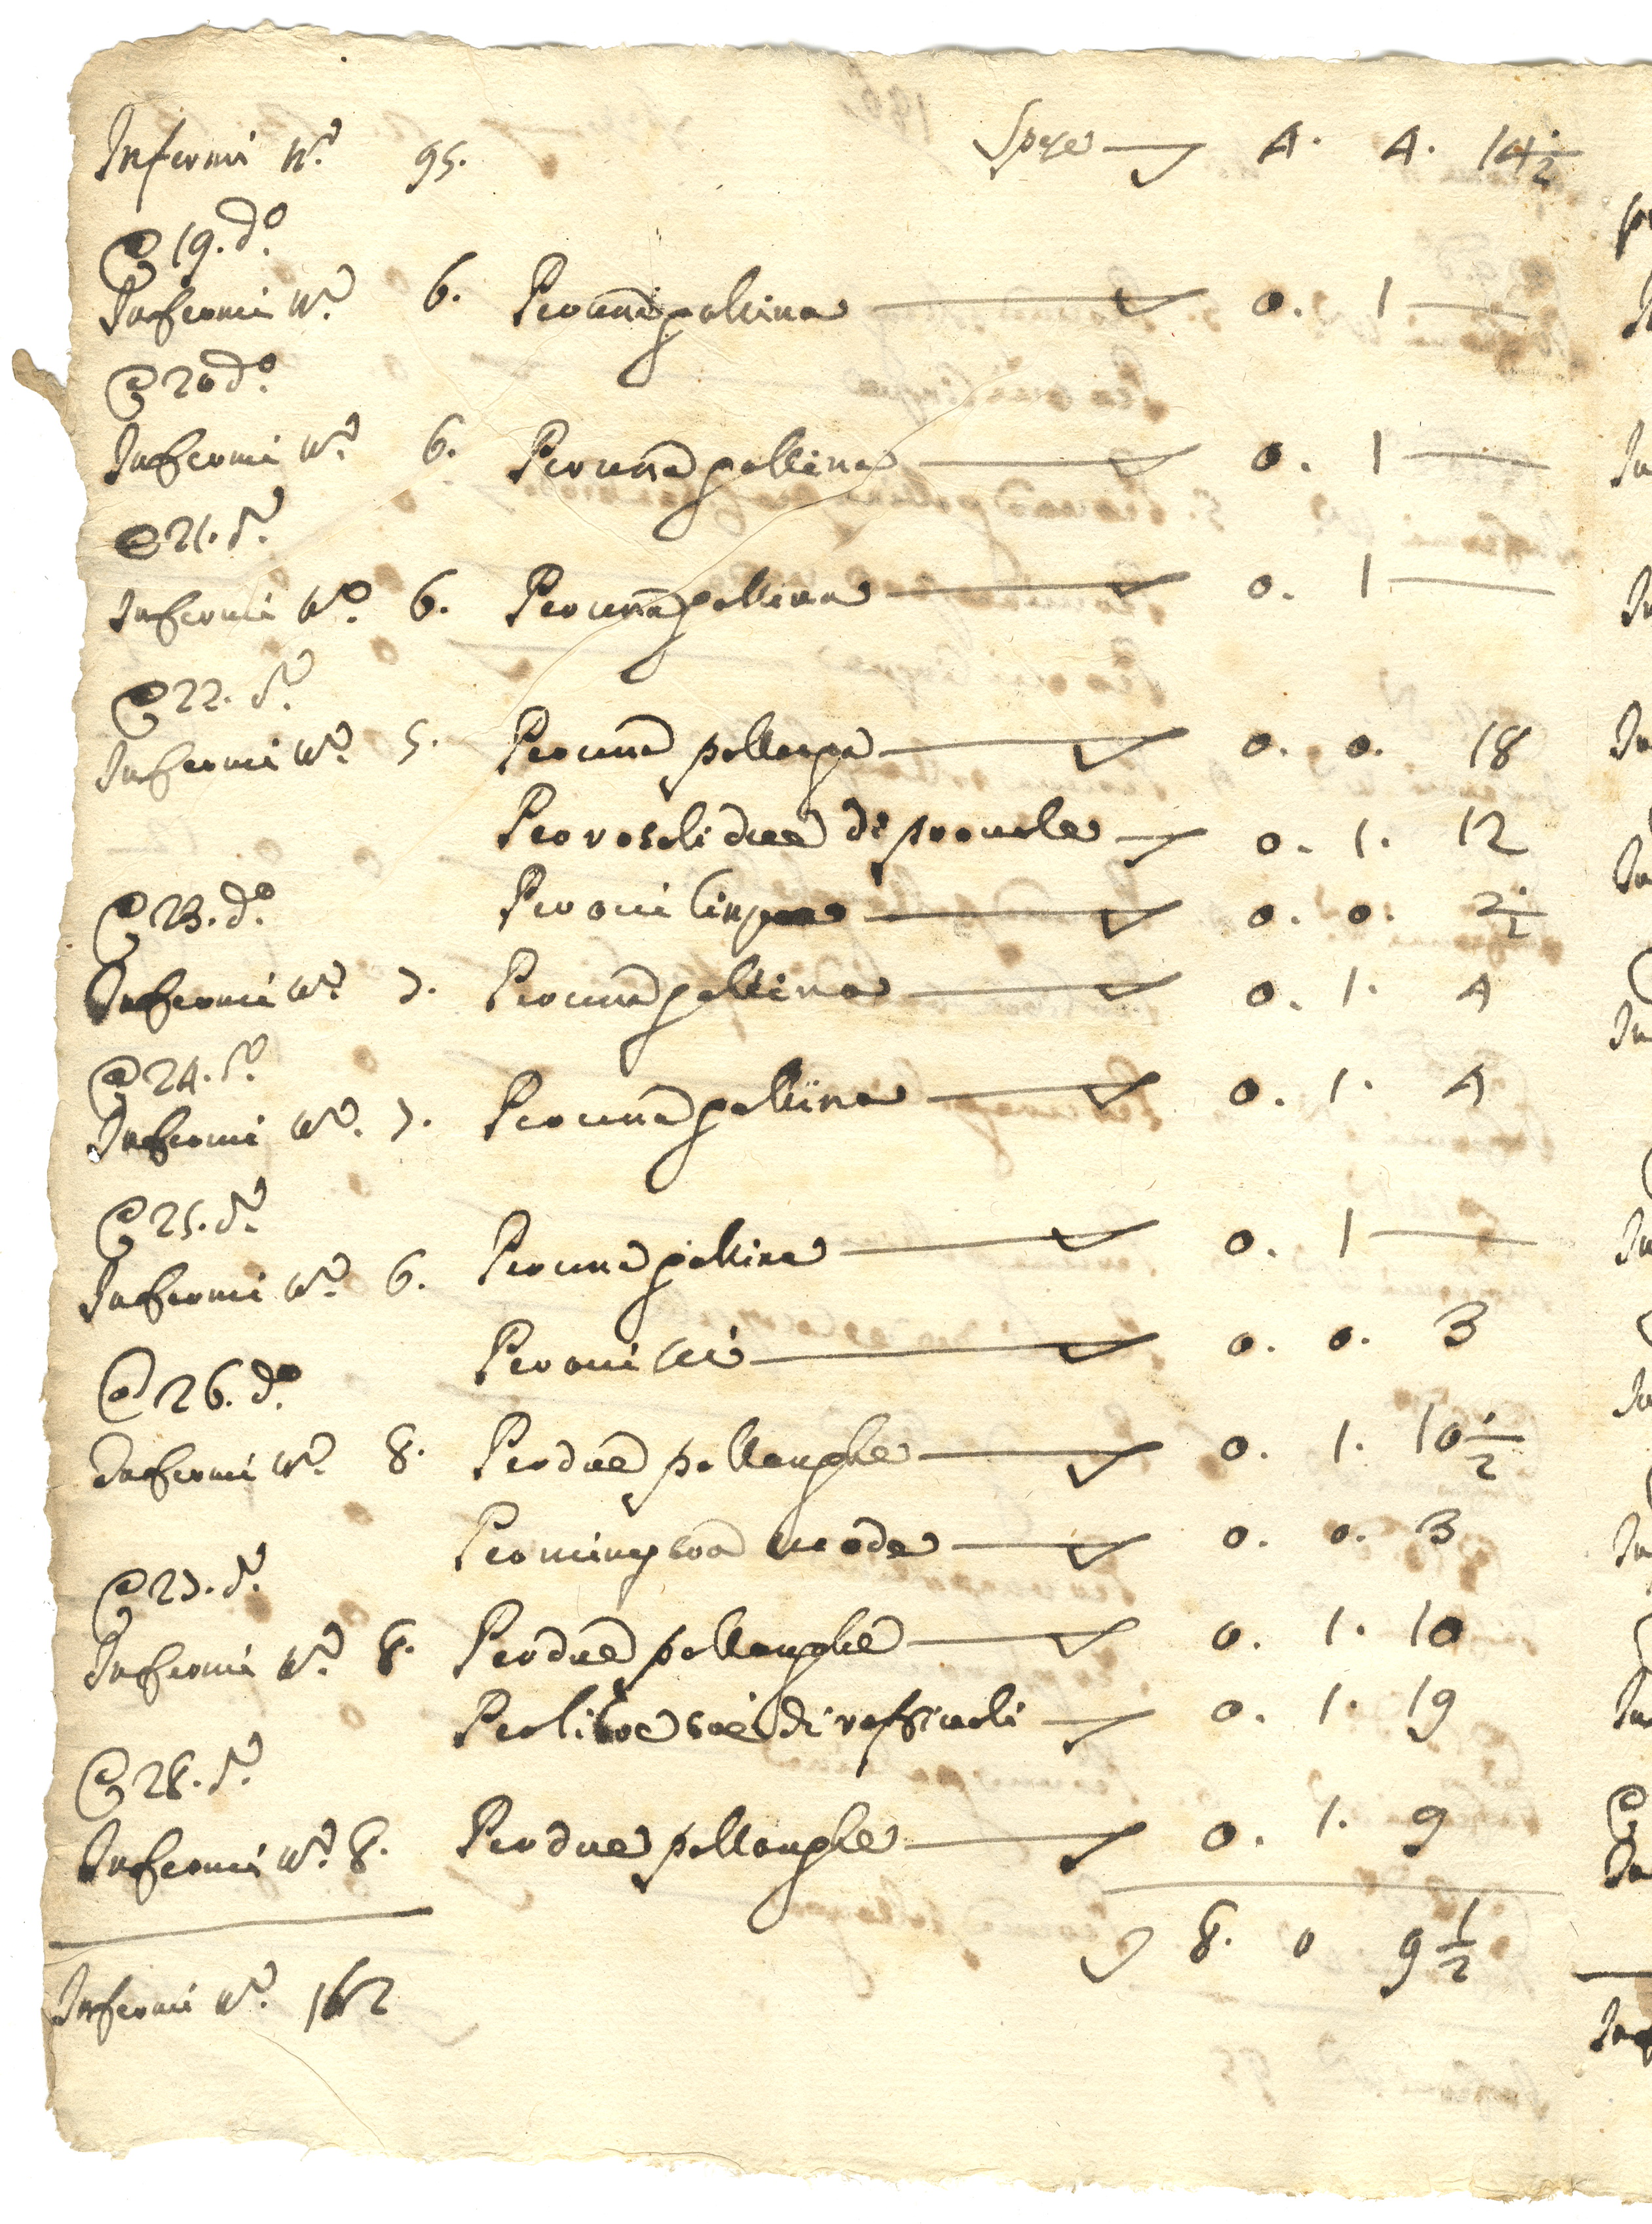 Infermi N.º 95. Spese 4. 4. 14 1/2
@ 19. d.º
Infermi N.º 6. Per una gallina 0. 1
@ 20 d.º
Infermi N.º 6. Per una gallina 0. 1
@ 21. d.º
Infermi N.º 6. Per una gallina 0. 1
@ 22. d.º
Infermi N.º 5. Per una pollanga 0. 0. 18
Per rotoli due di 0. 1. 12
Per ovi cinque 0. 0. 2 1/2
@ 23. d.º
Infermi N.º 7. Per una gallina 0. 1. 4
@ 24. d.º
Infermi N.º 7. Per una gallina 0. 1. 4
@ 25. d.º
Infermi N.º 6. Per una gallina 0. 1
Per ovi sei 0. 0. 3
@ 26. d.º
Infermi N.º 8. Per due pollanghe 0. 1. 10 1/2
Per minestra verde 0. 0. 3
@ 27. d.º
Infermi N.º 8. Per due pollanghe 0. 1. 10
Per libre tre di 0. 1. 19
@ 28. d.º
Infermi N.º 8. Per due pollanghe 0. 1. 9
8. 0 9 1/2
Infermi N.º 162